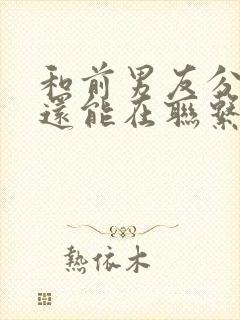 和前男友分
還能在聯繫
熱依木